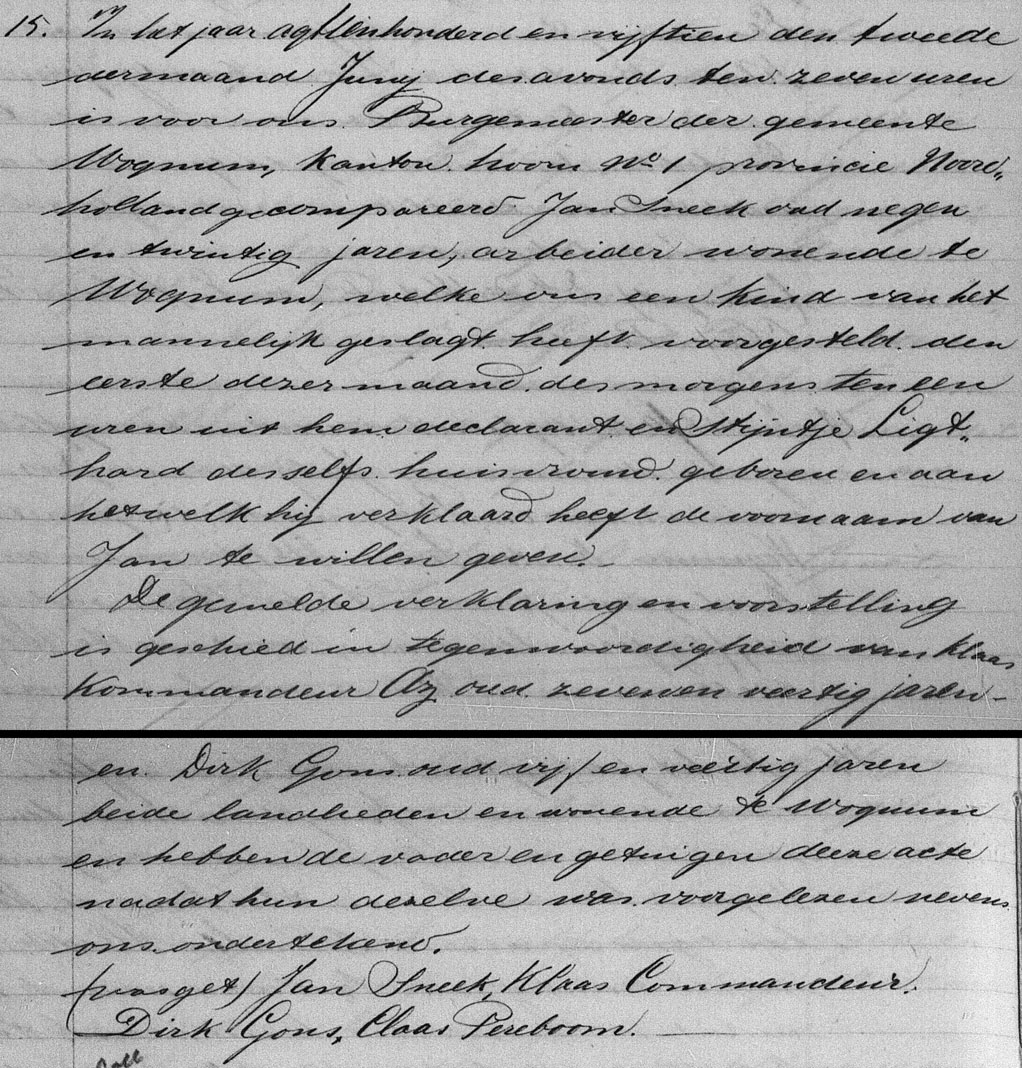 15. In het jaar agttienhonderd en vijftien den tweede
dermaand Junij des avonds ten zeven uren
is voor ons Burgemeester der gemeente
Wognum, Kanton hoorn No 1 provincie Noord„
holland gecompareerd Jan Sneek oud negen
en twintig jaren, arbeider wonende te
Wognum, welke ons een kind van het
mannelijk geslagt heeft voorgesteld den
eerste dezer maand des morgens ten een
uren uit hem declarant en Stijntje Ligt„
hard desselfs huisvrouw geboren en aan
hetwelk hij verklaard heeft de voornaam van
Jan te willen geven.
De gemelde verklaring en voorstelling
is geschied in tegenwoordigheid van Klaas
Kommandeur Az oud zeven en veertig jaren
en Dirk Gons oud vijf en veertig jaren
beide landlieden en wonende te Wognum
en hebben de vader en getuigen deeze acte
nadat hun dezelve was voorgelezen nevens
ons ondertekend.
(was get) Jan Sneek, Klaas Commandeur.
Dirk Gons, Claas Pereboom.